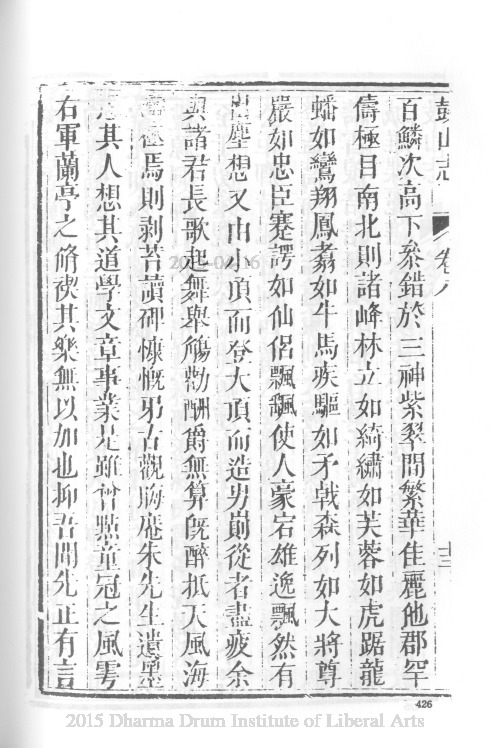 鼓山志 卷八 十三
百鱗次高下叅錯於三神紫翠間繁華佳麗他郡罕
儔極目南北則諸峰林立如綺繡如芙蓉如虎踞龍
蟠如鸞翔鳳翥如牛馬疾驅如矛戟森列如大將尊
嚴如忠臣蹇諤如仙侶飄飖使人豪宕雄逸飄然有
出塵想又由小頂而登大頂而造屴崱從者盡疲余
與諸君長歌起舞舉觴勸酬爵無算旣醉抵天風海
濤極焉則剥苔讀碑慷慨弔古觀晦庵朱先生遺墨
思其人想其道學文章事業是雖曾點童冠之風雩
右軍蘭亭之脩禊其樂無以加也抑吾聞先正有言
426
2015 Dharma Drum Institute of Liberal Arts